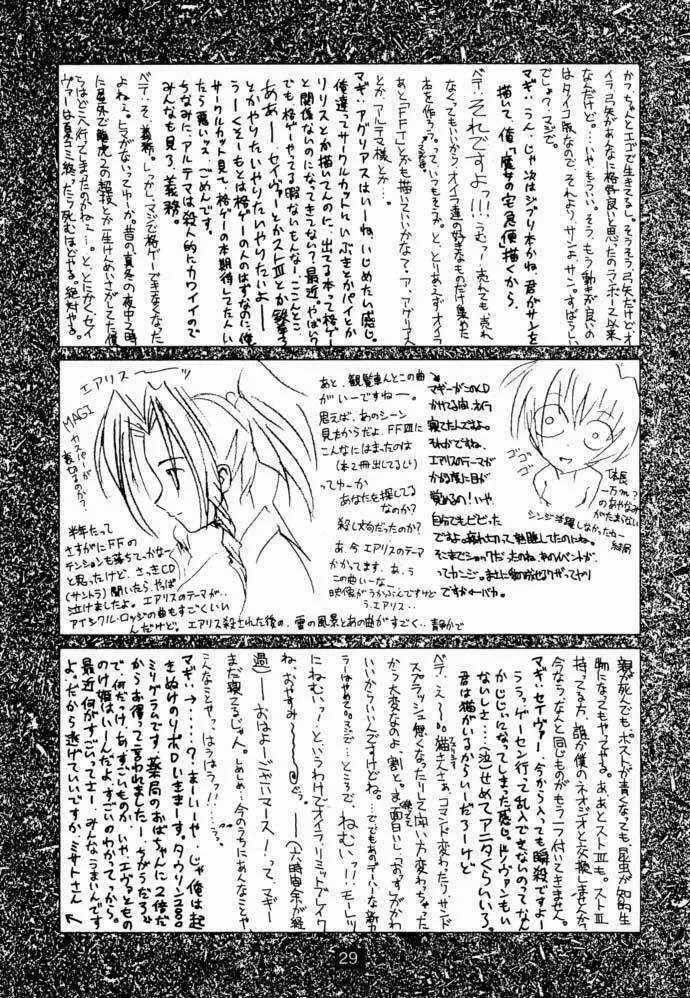 かつ、ちゃんとエゴで生きてるし。そうそう、弓矢だけど、オ
イラ弓矢があんなに格好良いと思ったのランボー以来
なんだけど。…いやもういい。そう、もう動きが良いの
はタイコ版なので、それより、サンよ、サン。すばらしい
でしょ？マジで。
マギ:うん、じゃ次はジブリ本かね。君がサンを
描いて、俺「魔女の宅急便」描くから。
ベテ:それですよ!!!うむっ！売れても売れ
なくてもいいからオイラ達の好きなものだけ集めた
本を作ろう。って、いつもそうか。と、とりあえずオイラ
あと「FFT」とかも描いていいかな？ア、アグリアス
とか、アルテマ様とか…。
マギ:アグリアスはいーね、いじめたい感じ。
俺達ってサークルカットにいぶきとかパイとか
リリスとか描いてんのに、出てる本って格ゲー
と関係ないのになってきてない？最近。やばい？
でも格ゲーやってる暇ないもんな、ここんとこ。
ああー、セイヴァーとかストⅢとか鉄拳3
とかやりたいやりたいやりたいよー
うーくそーもとは格ゲーの人のはずなのに、俺
サークルカット見て、格ゲーの本期待してた人いい
たら悪いっス ごめんです。
ちなみに、アルテマは殺人的にカワイイので
みんなも見ろ、義務。
ベテ:そ、義務。しっかしマジで格ゲーできなくなった
よねェ。ヒマがないってゆーか。昔の真冬の夜中2時
に屋外で龍虎の超技とか一生けんめいさがしてた俺
らはどこへ行ってしまったのかねェー。と、とにかくセイ
ヴァーは夏コミ終ったら死むほどやる。絶対やる。
エアリスー
MAGI
カスパーが裏切るのか？
半年たって
さすがにFFの
テンションも落ちていかなくて
と思ったけど、さっきCD
（サントラ）聞いたら、やば
泣けましたよ。エアリスのテーマが…
アイシクル・ロッジの曲もすごくいい
んだけど。エアリス殺された後の、雪の風景とあの曲がすごく…静かで
あと、観覧車んとこの曲
がいーですねー。
思えば、あのシーン
見たからだよ、FFⅦに
こんなにはまったのは
（本2冊出てるし）
ってゆーか
あなたを探してる
なのか？
殺し文句だったのか？
あ、今エアリスのテーマ
かかってます。あ、う
この曲いーなー
映像がうかぶんですけど
う、エアリス・・
マギーがこのCD
かけてる間、オイラ
寝てたんですよ。
それがですね、
エアリスのテーマが
かかる度に目が
覚めるの！いや、
自分でもビビった
ですよ。
ってカンジ。
ですかーバカ。
ゴゴゴゴ
体長
一万m？
のあやなみ
がたまがない
シンジ活躍しなかったねー
結局
親が死んでも、ポストが青くなっても、昆虫が知的生
物になってもやってる。ああ、とストⅢも。ストⅢ
持ってる方、誰か僕のネオジオと交換しませんか？
今なら、なんと同じものがもう一つ付いてきません。
マギ:セイヴァー、今から入っても瞬殺ですよー
ううっ。ゲーセン行って乱入できないのって、なん
かじじいになってしまった感じ。ドノヴァンもい
ないしさ…（泣）せめてアニタくらいいろ。
君は猫がいるからいーだろーけど
ベテ:え～。猫さんさぁ、コマンド変わったりサンド
スプラッシュ無くなったりして闘い方変わっちゃった
から大変なのよ、割と。ま、面白いし「おっす」がかわ
いいからいいんですけどね。
ラーはやめて。マジで…ところで、ねむいっ!!モーレッ
にねむいっ！というわけでオイラリミットブレイク
ね、おやすみ～。ー（六時間余が経
過）ーおはよーございマース！って、マギー
まだ寝てるじゃん。しめしめ、今のうちにあんなことや
こんなことやっ。はうはうっ!!……
マギ:→・・・・・？まーいーや じゃ俺は起
きぬけのリポDいきまーす。タウリン2000
ミリグラムです。薬局のおばちゃんに2倍だ
からお得って言われましたー ちがうだろ
で、何だっけ、あ、すごいものか、いやエヴァともの
のけ姫はいーんだよ、すごいのわかってっから。
最近何がすごいってさー、みんなうまいんです
よ。だから逃げていいですか、ミサトさん
29